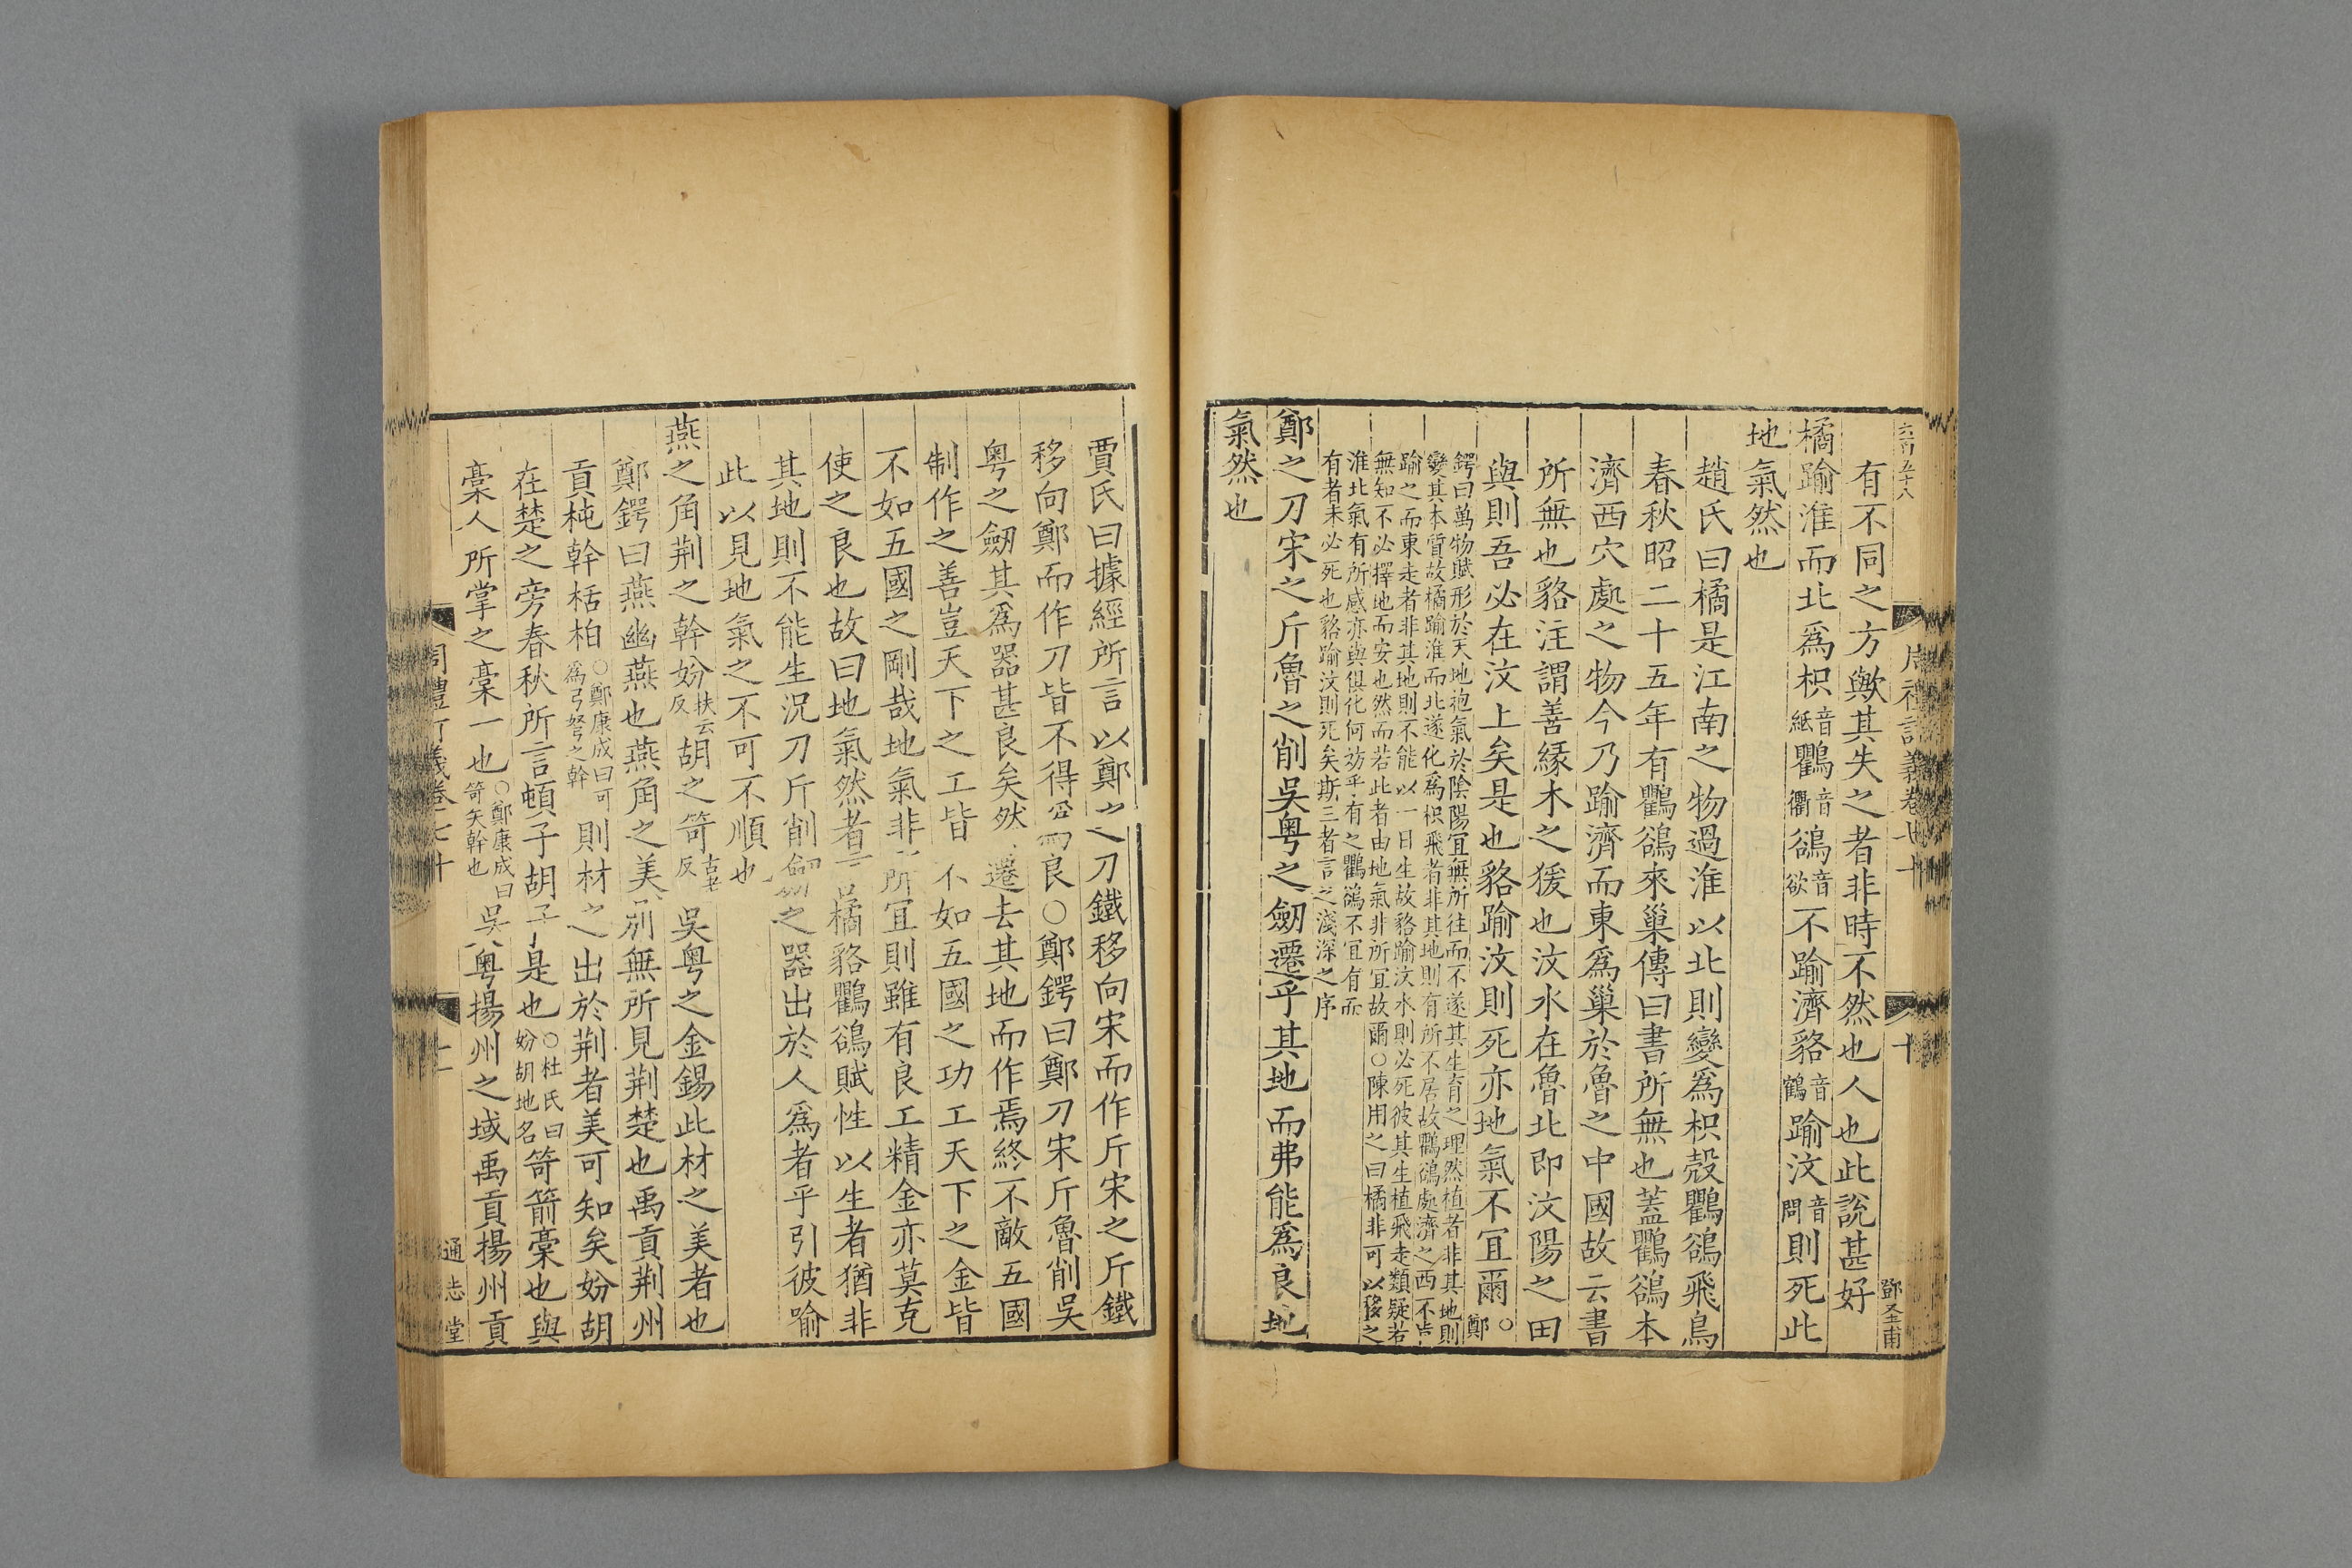 六百五十八
周禮訂義卷七十
十
鄧至甫
有不同之方歟其失之者非時不然也人也此說甚好
橘踰淮而北爲枳音紙鸜音衢鵒音欲不踰濟貉音鶴踰汶音問則死此
地氣然也
趙氏曰橘是江南之物過淮以北則變爲枳殼鸜鵒飛鳥
春秋昭二十五年有鸜鵒來巢傳曰書所無也蓋鸜鵒本
濟西穴處之物今乃踰濟而東爲巢於魯之中國故云書
所無也貉注謂善緣木之猨也汶水在魯北即汶陽之田
與則吾必在汶上矣是也貉踰汶則死亦地氣不宜爾○鄭
鍔曰萬物賦形於天地抱氣於陰陽宜無所往而不遂其生育之理然植者非其地則
變其本質故橘踰淮而北遂化爲枳飛者非其地則有所不居故鸜鵒處濟之西不肯
踰之而東走者非其地則不能以一日生故貉踰汶水則必死彼其生植飛走類疑若
無知不必擇地而安也然而若此者由地氣非所宜故爾○陳用之曰橘非可以移之
淮北氣有所感亦與俱化何妨乎有之鸜鵒不宜有而
有者未必死也貉踰汶則死矣斯三者言之淺深之序
鄭之刀宋之斤魯之削吳粤之劒遷乎其地而弗能爲良地
氣然也
賈氏曰據經所言以鄭之刀鐵移向宋而作斤宋之斤鐵
移向鄭而作刀皆不得爲良○鄭鍔曰鄭刀宋斤魯削吳
粤之劒其爲器甚良矣然遷去其地而作焉終不敵五國
制作之善豈天下之工皆不如五國之功工天下之金皆
不如五國之剛哉地氣非所宜則雖有良工精金亦莫克
使之良也故曰地氣然者橘貉鸜鵒賦性以生者猶非
其地則不能生況刀斤削劒之器出於人爲者乎引彼喻
此以見地氣之不可不順也
燕之角荆之幹妢扶云反胡之笴古老反吳粤之金錫此材之美者也
鄭鍔曰燕幽燕也燕角之美別無所見荆楚也禹貢荆州
貢杶幹栝柏○鄭康成曰可爲弓弩之幹則材之出於荆者美可知矣妢胡
在楚之旁春秋所言頓子胡子是也○杜氏曰妢胡地名笴箭槀也與
槀人所掌之槀一也○鄭康成曰笴矢幹也吳粤揚州之域禹貢揚州貢
周禮訂義卷七十
通志堂